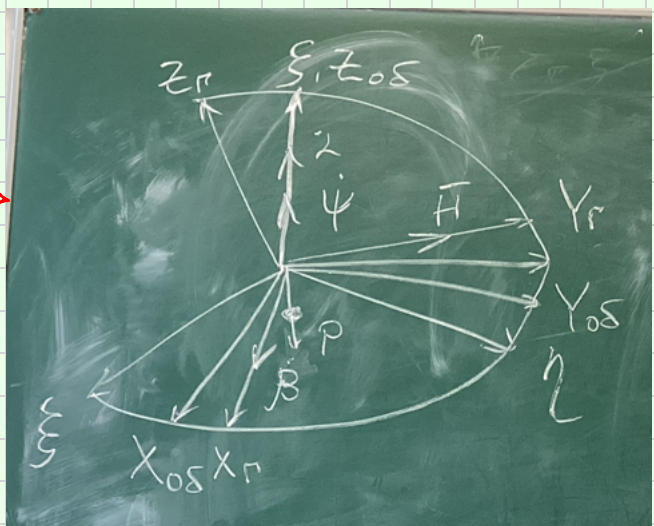 Zг
ξ, Zоб
α̇
ψ̇
H̄
Yг
Yоб
η
P
β̇
ξ
Xоб
Xг